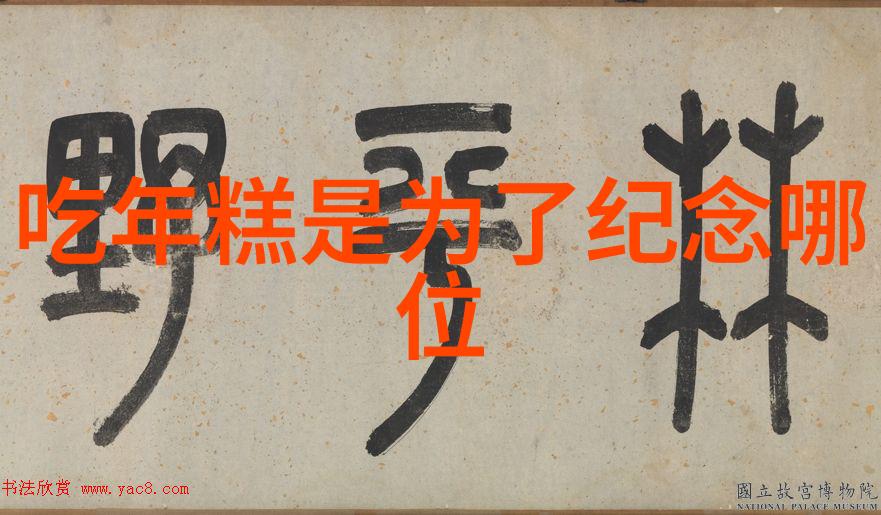 林 野
吃年糕是为了纪念哪
位
书法欣赏 www.yac8.com
國立故宮博物院
NATIONAL PALACE MUSEUM